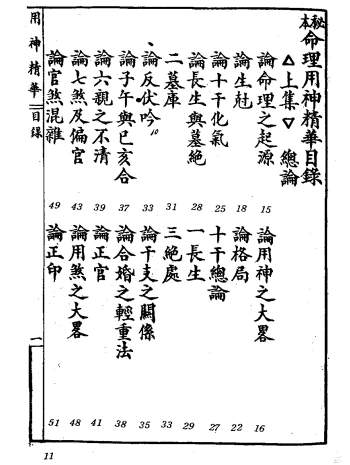 秘本命理用神精華目錄
△上集▽ 總論
論命理之起源 15
論用神之大畧 16
論生尅 18
論格局 22
論十干化氣 25
十干總論 27
論長生與墓絕 28
一長生 29
二墓庫 31
三絕處 33
論反伏吟 33
論干支之關係 35
論子午與巳亥合 37
論合婚之輕重法 38
論六親之不清 39
論正官 41
論七煞及偏官 43
論用煞之大畧 48
論官煞混雜 49
論正印 51
用神精華 目錄 一
11